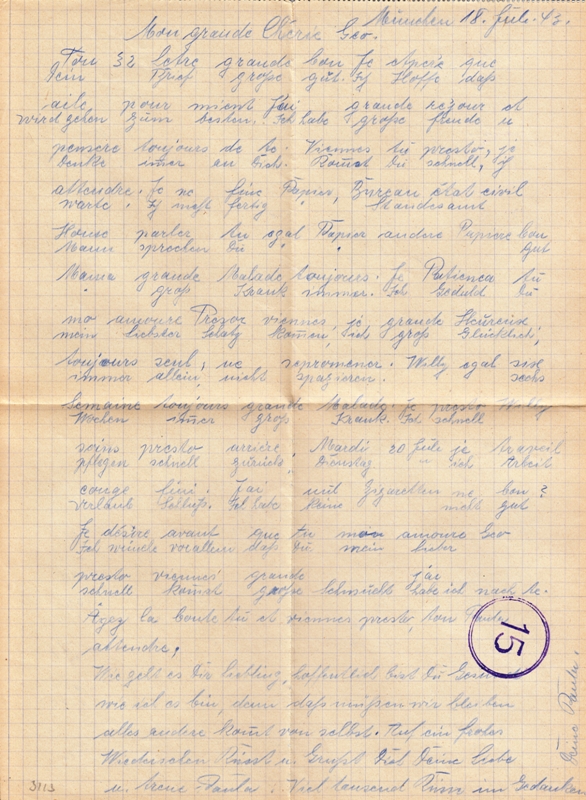 München 18. Juli. 43.
Mon grande Cherie Geo.
Ton 32 letre grande bon Je spere que
Dein Brief große gut. Ich Hoffe daß
aile pour mieut J'ai grande et
wird gehen zum besten. Ich habe große freude u
pensere toujours de te. Viennes tu presto, je
denke imer an Dich. Komst Du schnell, ich
attendre. Je ne fine Papier, Bureau état civil
warte. Ich nicht fertig " Standesamt
parter tu egal Papier andere Papiere bon
Mann sprechen Du " " gut
Mama grande Malade toujours. Je Patience tu
" groß Krank immer. Ich Geduld Du
mo amoure viennes, je grande Heureuse
mein liebster Schatz komen, ich groß Glücklich,
toujours seul, ne sepromener. Willy egal six
immer allein, nicht spazieren. sechs
Semaine toujours grande Malade. Je presto Willy
Wochen imer groß Krank. Ich schnell
soins presto ariere, Mardi 20 Juli je
pflegen schnell zurück, Dienstag " ich Arbeit
conge fini. J'ai nul Zigaretten ne bon?
Urlaub Ich habe keine nicht gut
Je désire avant que tu mon amoure Geo
Ich wünsche vorallem daß Du mein lieber
presto viennes grande j'ai
schnell komst große Sehnsucht habe ich nach te.
la tu et viennes presto, ton Paula
attendre.
Wie geht es Dir liebling, hoffentlich bist Du Gesund
wie ich es bin, denn daß müßen wir bleiben
alles andere komt von selbst. Auf ein frohes
Wiedersehen Küsst u. Grüßt Dich Deine liebe
u. treue Paula. Viel tausend Küsse im Gedanken
Paula.
15
3113